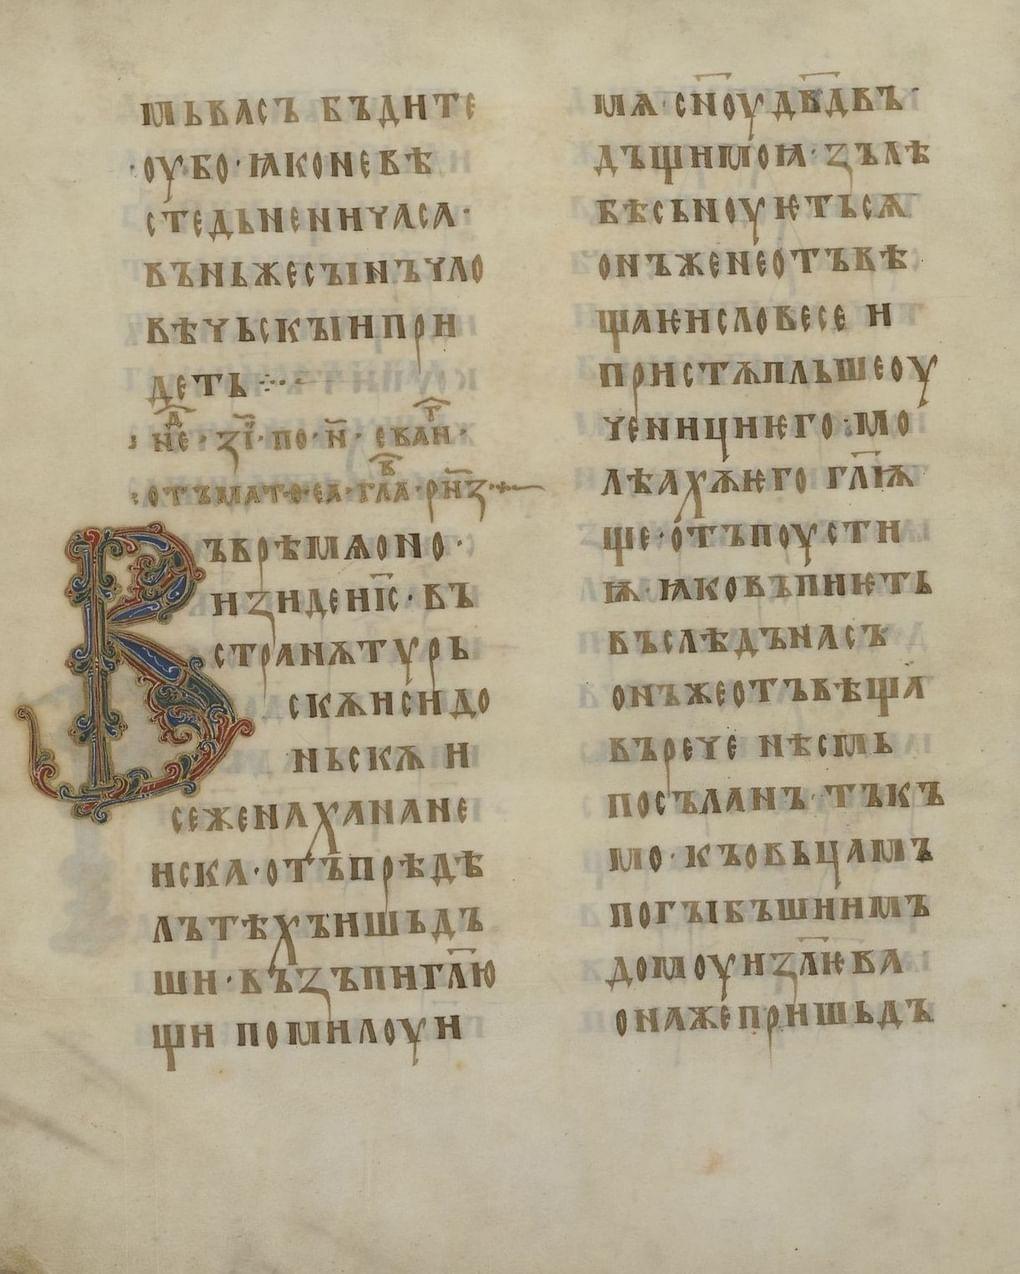 мь вас̾ъ бъдите
·оу·бо· ꙗконевѣ
стедьнениꙋаса·
въньжесꙑнъчло
вѣчьскꙑипри
деть ჻·
не҃д· з҃ı· по· н҃· еван҃г҃·
: отъмат·ѳ·еа· гла҃в· рн҃з·
Въврѣмѧоно·
изиде н҃ıс· въ
странѫтурь
скѫисидо
ньскѫ и
сеженаханане
иска· отъпрѣдѣ
лътѣхъишьдъ
ши· възъпигл҃ю
щи помилоуи
мѧ· сн҃оу дв҃двъ·
дъщимоꙗ· зълѣ
бѣсьноуѥтьсѧ
онъженеотъвѣ
щаѥислoвесе и
пристѫпльшеоу
ченициѥго: мо
лѣахѫѥго гл҃ıѫ
ще· отъпоусти
ѭ· ꙗковъпиѥть
въслѣдънасъ
онъжеотъвѣща
върече нѣсмь
посъланъ· тъкъ
мо· къовьцамъ
погꙑбъшиимъ
домоуиз҃лѥва
онажепришьдъ